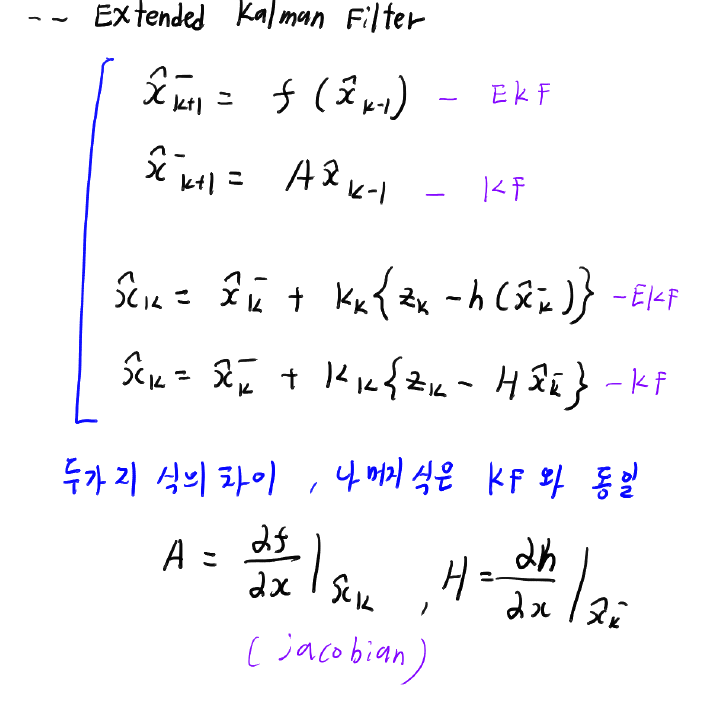 -- Extended Kalman Filter
x̂⁻ₖ₊₁ = f (x̂ₖ₋₁) - EKF
x̂⁻ₖ₊₁ = Ax̂ₖ₋₁ - KF
x̂ₖ = x̂⁻ₖ + Kₖ{zₖ - h(x̂⁻ₖ)} - EKF
x̂ₖ = x̂⁻ₖ + Kₖ{zₖ - Hx̂⁻ₖ} - KF
두가지 식의 차이, 나머지 식은 KF와 동일
A = ∂f/∂x |x̂ₖ , H = ∂h/∂x |x̂⁻ₖ
(jacobian)